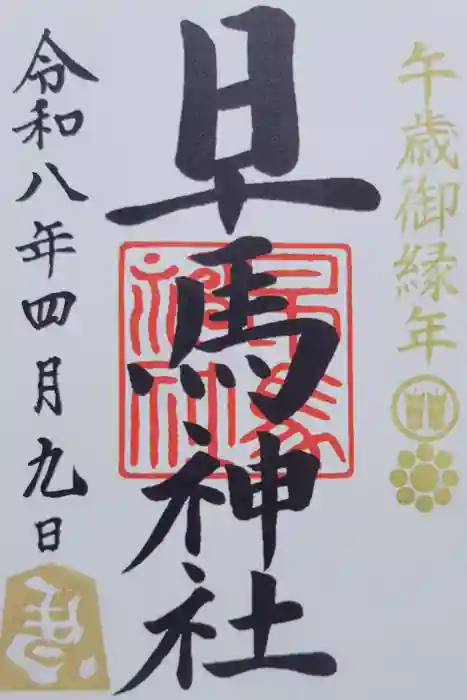 午歳御縁年
早馬神社
早馬神社
令和八年四月九日